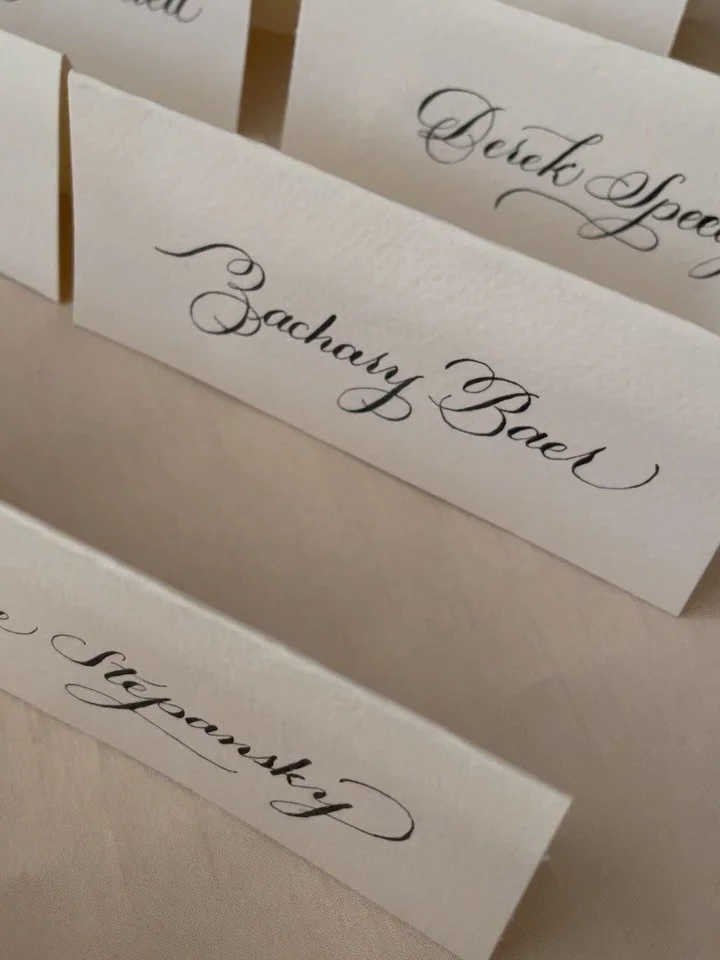 Derek
Zachary Baer
Stepansky